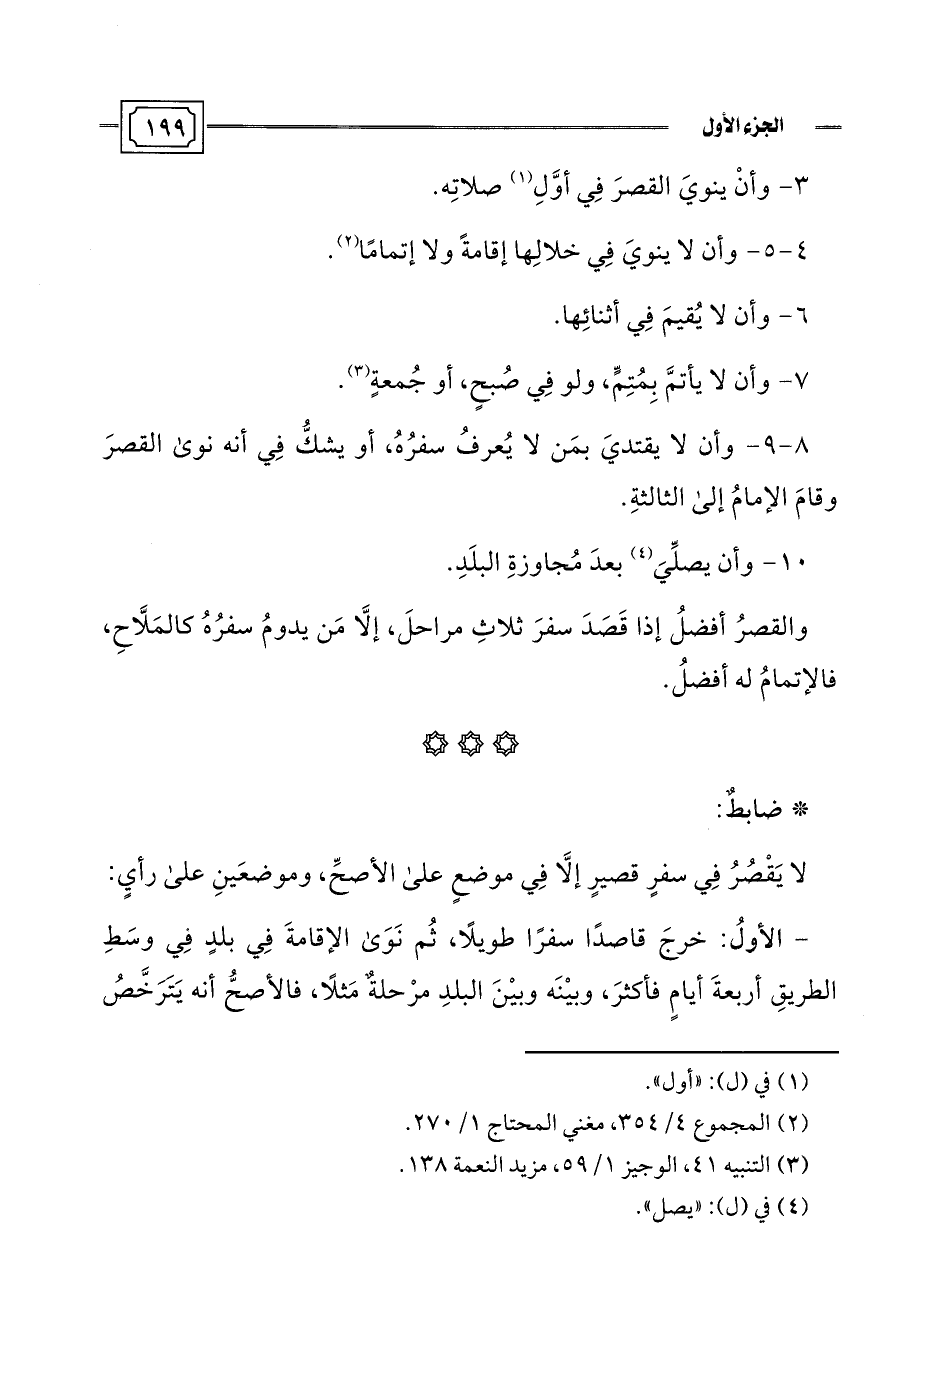 الجزء الأول
١٩٩
٣- وأنْ ينويَ القصرَ فِي أوَّلِ(١) صلاتِه.
٤-٥- وأن لا ينويَ فِي خلالِها إقامةً ولا إتمامًا(٢).
٦- وأن لا يُقيمَ فِي أثنائِها.
٧- وأن لا يأتمَّ بِمُتِمٍّ، ولو فِي صُبحٍ، أو جُمعةٍ(٣).
٨-٩- وأن لا يقتديَ بمَن لا يُعرفُ سفرُهُ، أو يشكُّ فِي أنه نوىٰ القصرَ
وقامَ الإمامُ إلىٰ الثالثةِ.
١٠- وأن يصلِّيَ(٤) بعدَ مُجاوزةِ البلَدِ.
والقصرُ أفضلُ إذا قَصَدَ سفرَ ثلاثِ مراحلَ، إلَّا مَن يدومُ سفرُهُ كالمَلَّاحِ،
فالإتمامُ له أفضلُ.
* ضابطٌ:
لا يَقْصُرُ فِي سفرٍ قصيرٍ إلَّا فِي موضعٍ علىٰ الأصحِّ، وموضعَينِ علىٰ رأيٍ:
- الأولُ: خرجَ قاصدًا سفرًا طويلًا، ثُم نَوَىٰ الإقامةَ فِي بلدٍ فِي وسَطِ
الطريقِ أربعةَ أيامٍ فأكثرَ، وبيْنَه وبيْنَ البلدِ مرْحلةٌ مَثلًا، فالأصحُّ أنه يَتَرَخَّصُ
(١) في (ل): «أول».
(٢) المجموع ٤/ ٣٥٤، مغني المحتاج ١/ ٢٧٠.
(٣) التنبيه ٤١، الوجيز ١/ ٥٩، مزيد النعمة ١٣٨.
(٤) في (ل): «يصل».